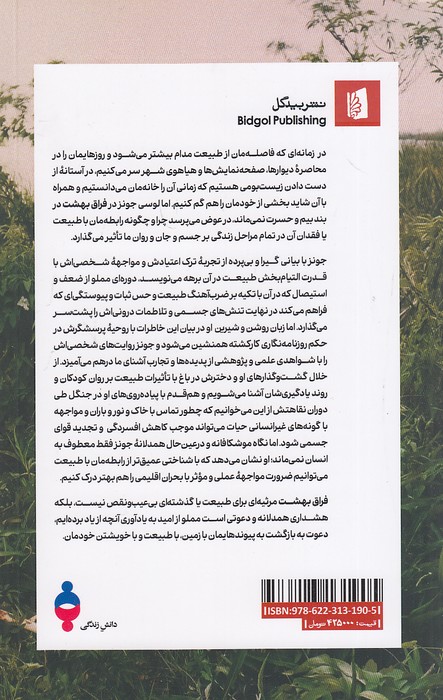 نشر بیدگل
Bidgol Publishing
در زمانه‌ای که فاصله‌مان از طبیعت مدام بیشتر می‌شود و روزهایمان را در
محاصرهٔ دیوارها، صفحه‌نمایش‌ها و هیاهوی شهر سر می‌کنیم، در آستانهٔ از
دست دادن زیست‌بومی هستیم که زمانی آن را خانه‌مان می‌دانستیم و همراه
با آن شاید بخشی از خودمان را هم گم کنیم. اما لوسی جونز در فراق بهشت در
بند بیم و حسرت نمی‌ماند، در عوض می‌پرسد چرا و چگونه رابطه‌مان با طبیعت
یا فقدان آن در تمام مراحل زندگی بر جسم و جان و روان ما تأثیر می‌گذارد.
جونز با بیانی گیرا و بی‌پرده از تجربهٔ ترک اعتیادش و مواجههٔ شخصی‌اش با
قدرت التیام‌بخش طبیعت در آن برهه می‌نویسد. دوره‌ای مملو از ضعف و
استیصال که در آن با تکیه بر ضرب‌آهنگ طبیعت و حس ثبات و پیوستگی‌ای که
فراهم می‌کند در نهایت تنش‌های جسمی و تلاطمات درونی‌اش را پشت‌سر
می‌گذارد. اما زبان روشن و شیرین او در بیان این خاطرات با روحیهٔ پرسشگرش در
حکم روزنامه‌نگاری کارکشته همنشین می‌شود و جونز روایت‌های شخصی‌اش
را با شواهدی علمی و پژوهشی از پدیده‌ها و تجارب آشنای ما درهم می‌آمیزد. از
خلال گشت‌وگذارهای او و دخترش در باغ با تأثیرات طبیعت بر روان کودکان و
روند یادگیری‌شان آشنا می‌شویم و هم‌قدم با پیاده‌روی‌های او در جنگل طی
دوران نقاهتش از این می‌خوانیم که چطور تماس با خاک و نور و باران و مواجهه
با گونه‌های غیرانسانی حیات می‌تواند موجب کاهش افسردگی و تجدید قوای
جسمی شود. اما نگاه موشکافانه و درعین‌حال همدلانهٔ جونز فقط معطوف به
انسان نمی‌ماند؛ او نشان می‌دهد که با شناختی عمیق‌تر از رابطه‌مان با طبیعت
می‌توانیم ضرورت مواجههٔ عملی و مؤثر با بحران اقلیمی را هم بهتر درک کنیم.
فراق بهشت مرثیه‌ای برای طبیعت یا گذشته‌ای بی‌عیب‌ونقص نیست، بلکه
هشداری همدلانه و دعوتی است مملو از امید به یادآوری آنچه از یاد برده‌ایم،
دعوت به بازگشت به پیوندهایمان با زمین، با طبیعت و با خویشتن خودمان.
ISBN: 978-622-313-190-5
قیمت: ۴۲۵۰۰۰ تومان
دانشِ زندگی